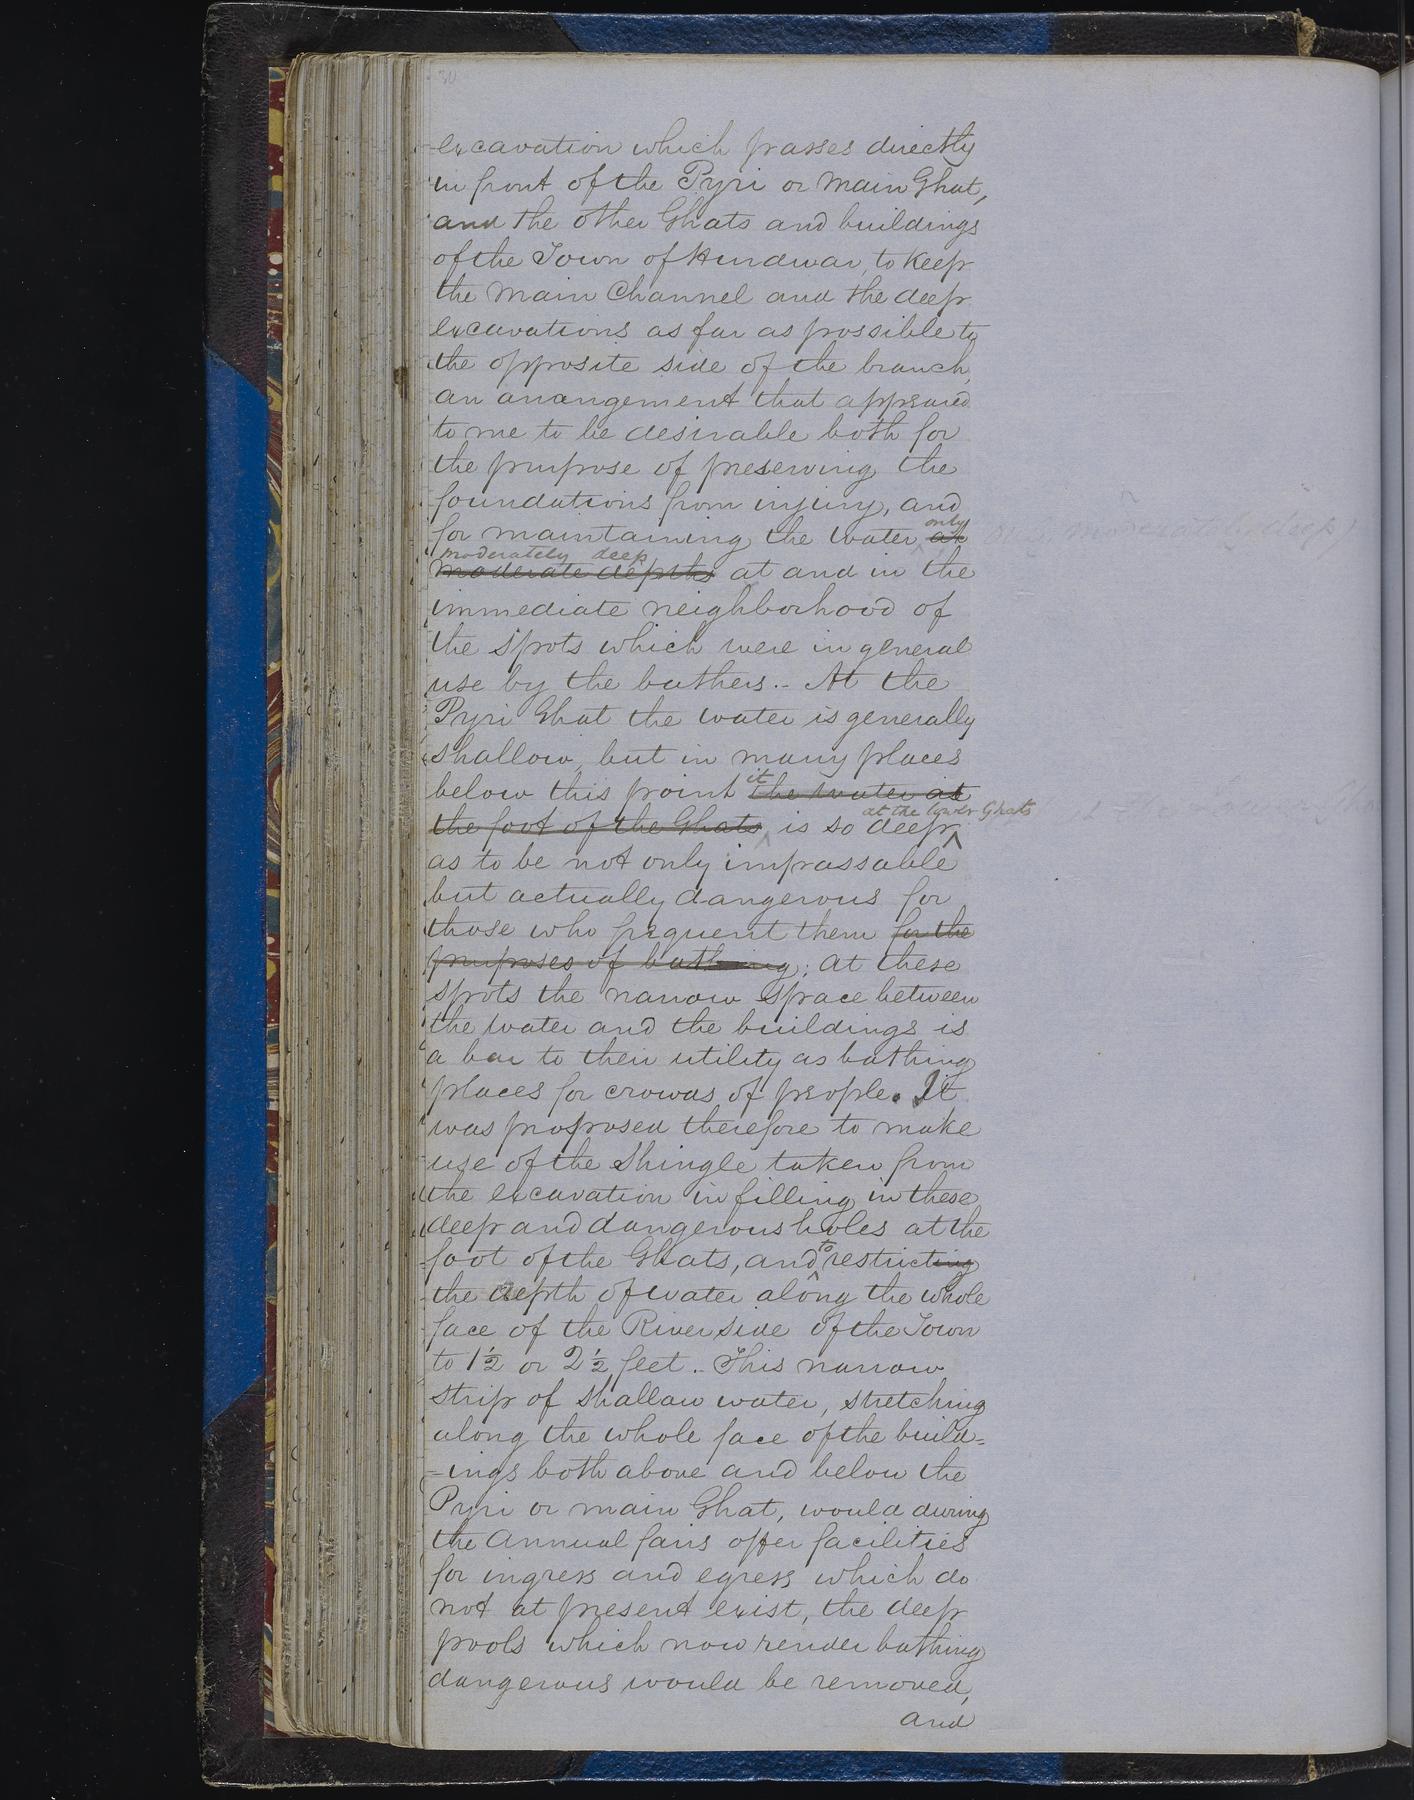 30
excavation which passes directly
in front of the Pyri or Main Ghat,
and the other Ghats and buildings
of the Town of Hurdwar, to keep
the Main Channel and the deep
excavations as far as possible to
the opposite side of the branch,
an arrangement that appeared
to me to be desirable both for
the purpose of preserving the
foundations from injury, and
only
for maintaining the water at
moderately deep
moderate depths at and in the
immediate neighborhood of
the spots which were in general
use by the bathers.- At the
Pyri Ghat the water is generally
shallow, but in many places
it
below this point the water at
at the lower Ghats
the foot of the Ghats is so deep
as to be not only impassable
but actually dangerous for
those who frequent them for the
purposes of bathing; at these
spots the narrow space between
the water and the buildings is
a bar to their utility as bathing
places for crowds of people. It
was proposed therefore to make
use of the Shingle taken from
the excavation in filling in these
deep and dangerous holes at the
to
foot of the Ghats, and restricting
the depth of water along the whole
face of the River side of the Town
to 1½ or 2½ feet. This narrow
strip of shallow water, stretching
along the whole face of the build=
=ings both above and below the
Pyri or main Ghat, would during
the annual fairs offer facilities
for ingress and egress which do
not at present exist, the deep
pools which now render bathing
dangerous would be removed,
and